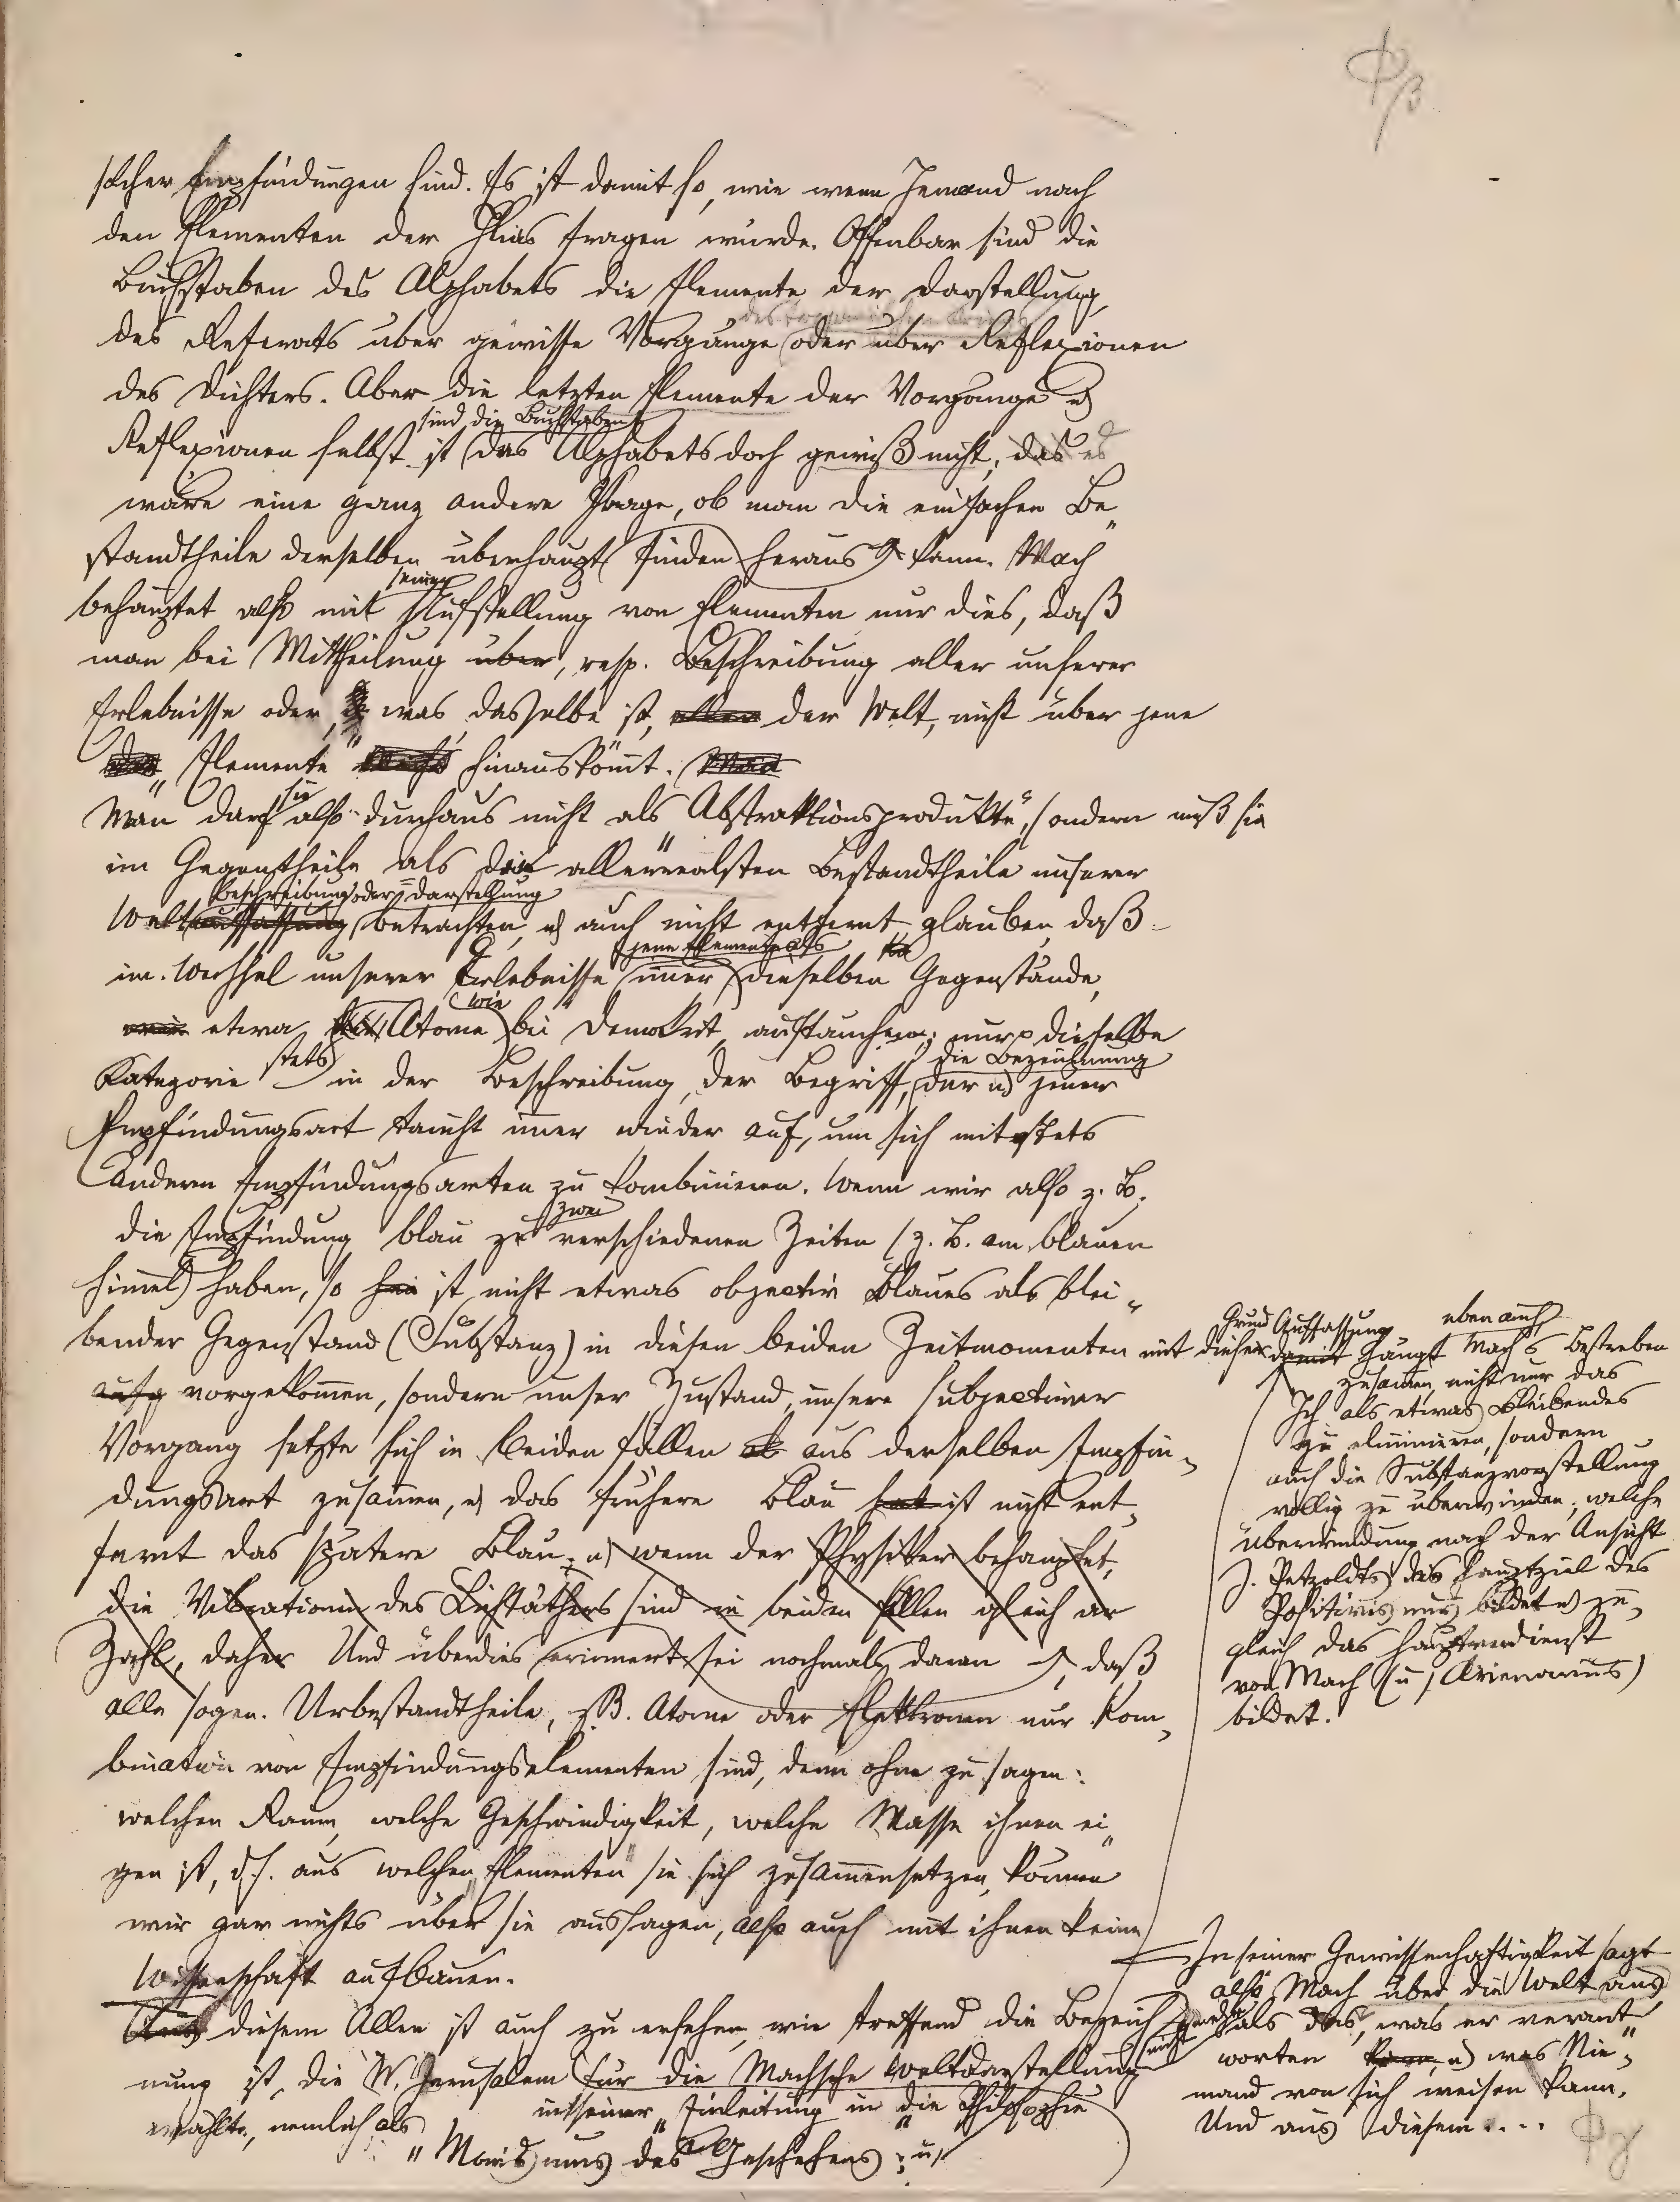 φ/β
solcher Empfindungen sind. Es ist damit so, wie wenn Jemand nach
den Elementen der Ilias fragen würde. Offenbar sind die
Buchstaben des Alphabets die Elemente der Darstellung,
des Referats über gewisse Vorgänge oder über Reflexionen
des Dichters. Aber die letzten Elemente der Vorgänge u)
sind die Buchstaben
Reflexionen selbst ist das Alphabets doch gewiß nicht, das es
wäre eine ganz andere Frage, ob man die einfachen Be„
standtheile derselben überhaupt finden heraus kann. Mach
seiner
behauptet also mit Aufstellung von Elementen nur dies, daß
man bei Mittheilung über, resp. Beschreibung aller unserer
Erlebnisse oder, was dasselbe ist, aller der Welt, nicht über jene
„Elemente“ nicht hinauskömt. Man
sie
Man darf also durchaus nicht als „Abstraktionsprodukte“, sondern muß sie
im Gegentheile als die allerrealsten Bestandtheile unserer
beschreibung oder = darstellung
Weltauffassung betrachten, u) auch nicht entfernt glauben, daß
jene Elemente als
im Wechsel unserer Erlebnisse imer dieselben Gegenstände,
wie
etwa Atome bei Demokrit auftauchen; nur dieselbe
stets die Bezeichnung
Kategorie in der Beschreibung, der Begriff, der u) jener
Empfindungsart taucht imer wieder auf, um sich mit stets
anderen Empfindungsarten zu kombinieren. Wenn wir also z. B.
zwei
die Empfindung blau zu verschiedenen Zeiten (z. B. am blauen
Himel) haben, so ist nicht etwas objectiv Blaues als blei„
bender Gegenstand (Substanz) in diesen beiden Zeitmomenten
aufg vorgekomen, sondern unser Zustand, unsere subjectiver
Vorgang setzte sich in beiden Fällen aus derselben Empfin„
dungsart zusamen, u) das frühere Blau hat ist nicht ent„
fernt das spätere Blau; u) wenn der Physiker behauptet,
die Vibrationen des Lichtäthers sind in beiden Fällen gleich an
Zahl, daher Und überdies erinnert sei nochmals daran, daß
alle sogen. Urbestandtheile, z.B. Atome oder Elektronen nur Kom„
bination von Empfindungselementen sind, denn ohne zu sagen:
welcher Raum, welche Geschwindigkeit, welche Masse ihnen ei„
gen ist, d.h. aus welchen „Elementen“ sie sich zusammensetzen, könen
wir gar nichts über sie aussagen, also auch mit ihnen keine
Wissenschaft aufbauen.
Aus diesem Allen ist auch zu ersehen, wie treffend die Bezeich„
nung ist, die W. Jerusalem für die Machsche Weltdarstellung
in seiner „Einleitung in die Philosophie“
wählte, nemlich als
„Monismus des Geschehens“; u)
Grund Auffassung eben auch
mit dieser damit hängt Mach's Bestreben
zusamen, nicht nur das
Ich als etwas Bleibendes
zu eliminieren, sondern
auch die Substanzvorstellung
völlig zu überwinden, welche
Überwindung nach der Ansicht
J. Petzoldts das Hauptziel des
Positivismus bildet u) zu„
gleich das Hauptverdienst
von Mach (u) Avenarius)
bildet.
In seiner Gewissenhaftigkeit sagt
also Mach über die Welt aus
nicht als das, was er verant„
worten kann, u) was Nie„
mand von sich weisen kann.
Und aus diesem....
φγ